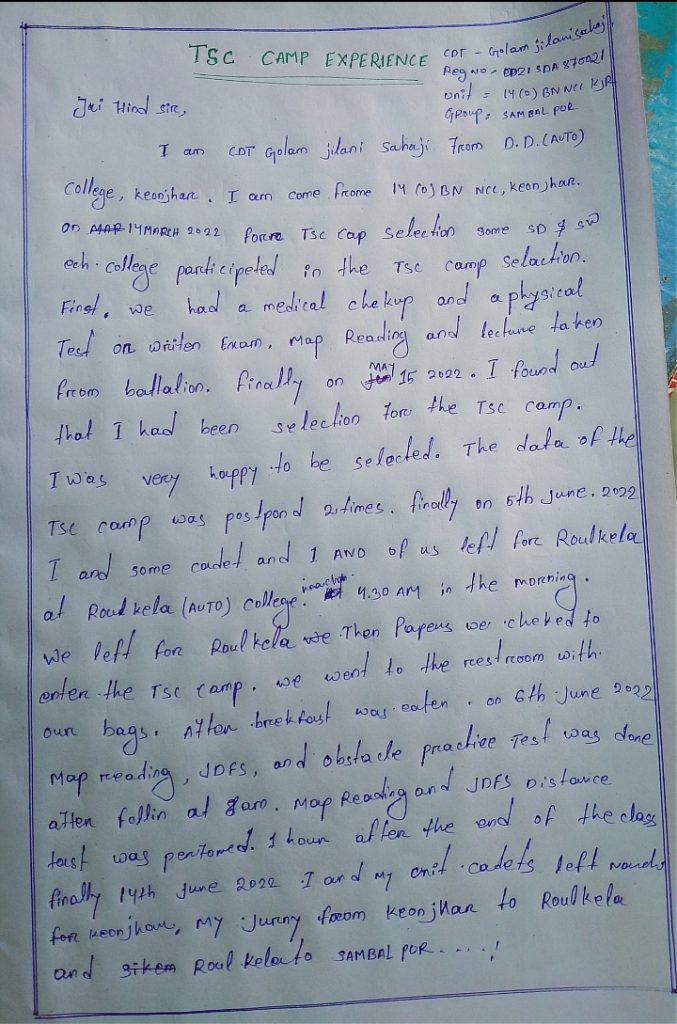 TSC CAMP EXPERIENCE
CDT - Golam jilani sahaji
Reg no - OD21SDA870021
unit = 14(O) BN NCC KJR
GROUP, SAMBAL POR
Jai Hind sir,
I am CDT Golam jilani Sahaji From D.D.(AUTO)
College, keonjhar. I am come frome 14 (O) BN NCC, keonjhar.
on 14 MARCH 2022 forre TSC Cap selection some SD & SW
ech. college participeted in the TSC camp selaction.
First, we had a medical chekup and a physical
Test on writen Exam, Map Reading and lecture taken
from battalion. Finally on MAY 15 2022. I found out
that I had been selection fore the TSC camp.
I was very happy to be selected. The data of the
TSC camp was postpond 2 times. finally on 5th June. 2022
I and some cadet and 1 ANO of us left fore Roulkela
at Roulkela (AUTO) college. 4.30 AM in the morening.
we left for Roulkela we Then Papers wer cheked to
enter the TSC camp. we went to the reestroom with.
our bags. After breekfast was eaten. on 6th June 2022
Map reading, JDFS, and obstacle practice Test was done
after follin at 8am. Map Reading and JDFS Distance
tast was perfomed. 1 hour after the end of the class
finally 14th June 2022 I and my unit cadets left
for keonjhar, My Jurny from keonjhar to Roulkela
and Roulkela to SAMBAL POR ....!